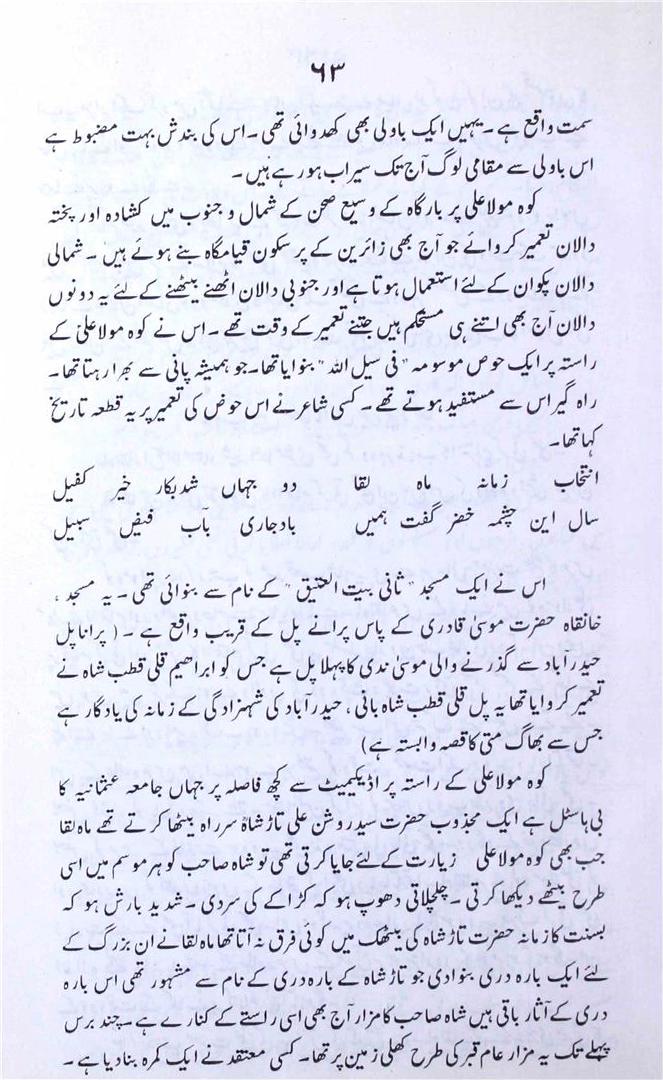 ۶۳
سمت واقع ہے۔ یہیں ایک باولی بھی کھدوائی تھی۔ اس کی بندش بہت مضبوط ہے
اس باولی سے مقامی لوگ آج تک سیراب ہو رہے ہیں۔
کوہ مولا علی پر بارگاہ کے وسیع صحن کے شمال و جنوب میں کشادہ اور پختہ
دالان تعمیر کروائے جو آج بھی زائرین کے پر سکون قیامگاہ بنے ہوئے ہیں۔ شمالی
دالان پکوان کے لئے استعمال ہوتا ہے اور جنوبی دالان اٹھنے بیٹھنے کے لئے یہ دونوں
دالان آج بھی اتنے ہی مستحکم ہیں جتنے تعمیر کے وقت تھے۔ اس نے کوہ مولا علیؑ کے
راستہ پر ایک حوض موسومہ "فی سبل اللہ" بنوایا تھا۔ جو ہمیشہ پانی سے بھرا رہتا تھا۔
راہ گیر اس سے مستفید ہوتے تھے۔ کسی شاعر نے اس حوض کی تعمیر پر یہ قطعہ تاریخ
کہا تھا۔
انتخاب زمانہ ماہ لقا دو جہاں شد بکار خیر کفیل
سال این چشمہ خضر گفت ہمیں بادجاری باب فیض سبیل
اس نے ایک مسجد "ثانی بیت العتیق" کے نام سے بنوائی تھی۔ یہ مسجد،
خانقاہ حضرت موسیٰ قادری کے پاس پرانے پل کے قریب واقع ہے۔ (پرانا پل
حیدرآباد سے گذرنے والی موسیٰ ندی کا پہلا پل ہے جس کو ابراھیم قلی قطب شاہ نے
تعمیر کروایا تھا یہ پل قلی قطب شاہ بانی، حیدرآباد کی شہزادگی کے زمانہ کی یادگار ہے
جس سے بھاگ متی کا قصہ وابستہ ہے)
کوہ مولا علی کے راستہ پر اڈیکمیٹ سے کچھ فاصلہ پر جہاں جامعہ عثمانیہ کا
بی ہاسٹل ہے ایک مجذوب حضرت سید روشن علی تاڑ شاہ سر راہ بیٹھا کرتے تھے ماہ لقا
جب بھی کوہ مولا علی زیارت کے لئے جایا کرتی تھی تو شاہ صاحب کو ہر موسم میں اسی
طرح بیٹھے دیکھا کرتی۔ چلچلاتی دھوپ ہو کہ کڑاکے کی سردی۔ شدید بارش ہو کہ
بسنت کا زمانہ حضرت تاڑ شاہ کی بیٹھک میں کوئی فرق نہ آتا تھا ماہ لقا نے ان بزرگ کے
لئے ایک بارہ دری بنوادی جو تاڑ شاہ کے بارہ دری کے نام سے مشہور تھی اس بارہ
دری کے آثار باقی ہیں شاہ صاحب کا مزار آج بھی اسی راستے کے کنارے ہے۔ چند برس
پہلے تک یہ مزار عام قبر کی طرح کھلی زمین پر تھا۔ کسی معتقد نے ایک کمرہ بنا دیا ہے۔